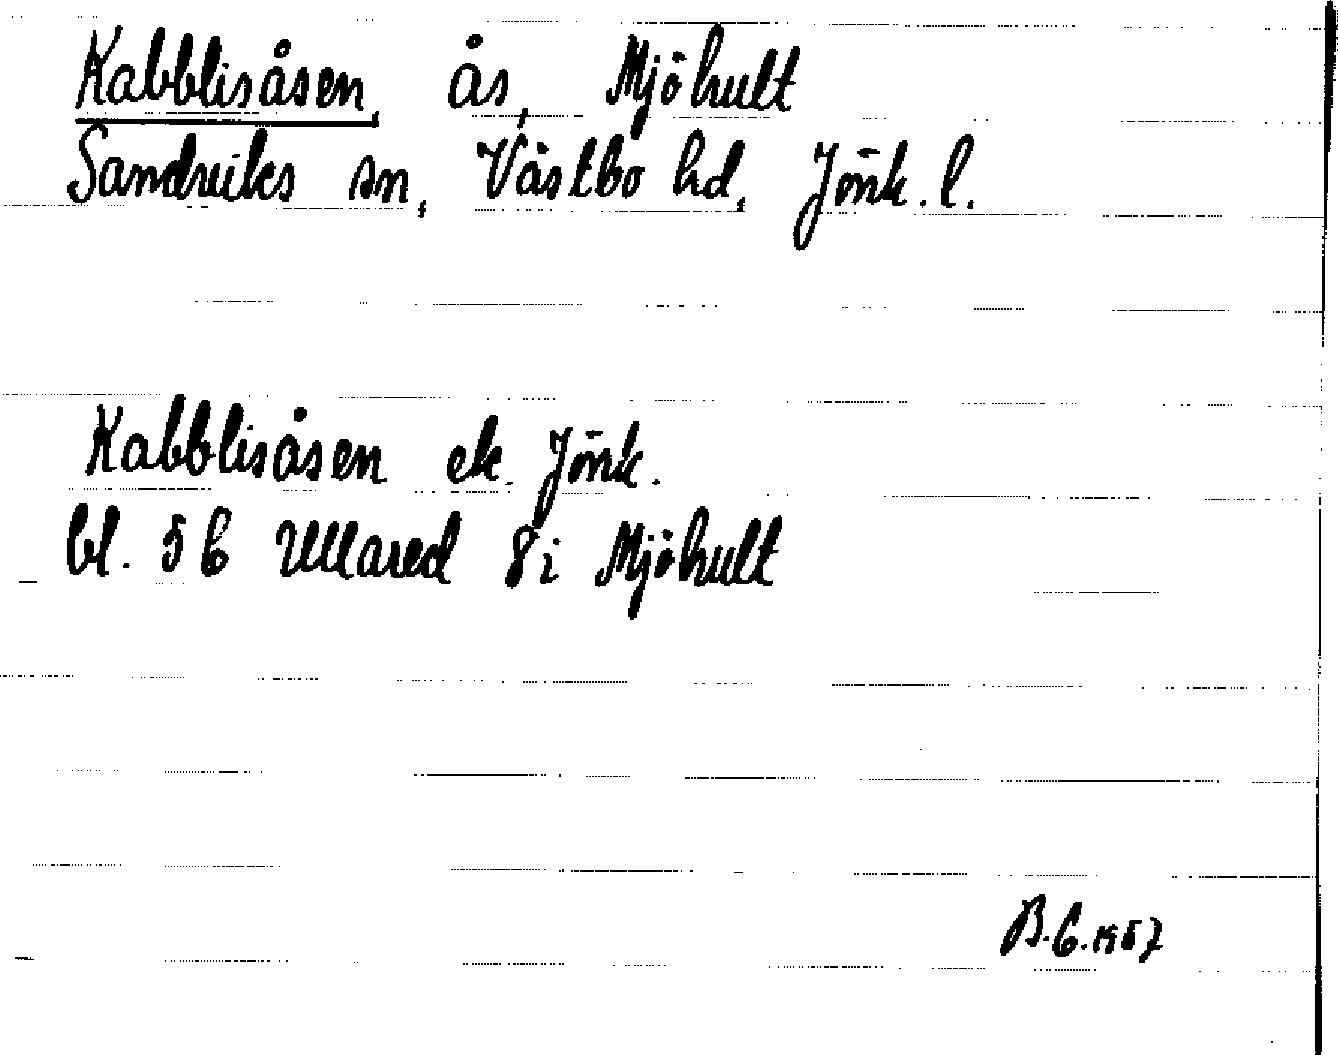 Kabblisåsen, ås, Mjöhult
Sandviks sn, Västbo hd, Jönk. l.
Kabblisåsen ek. Jönk.
bl. 5 C Ullared 8 i Mjöhult
B.C. 1957